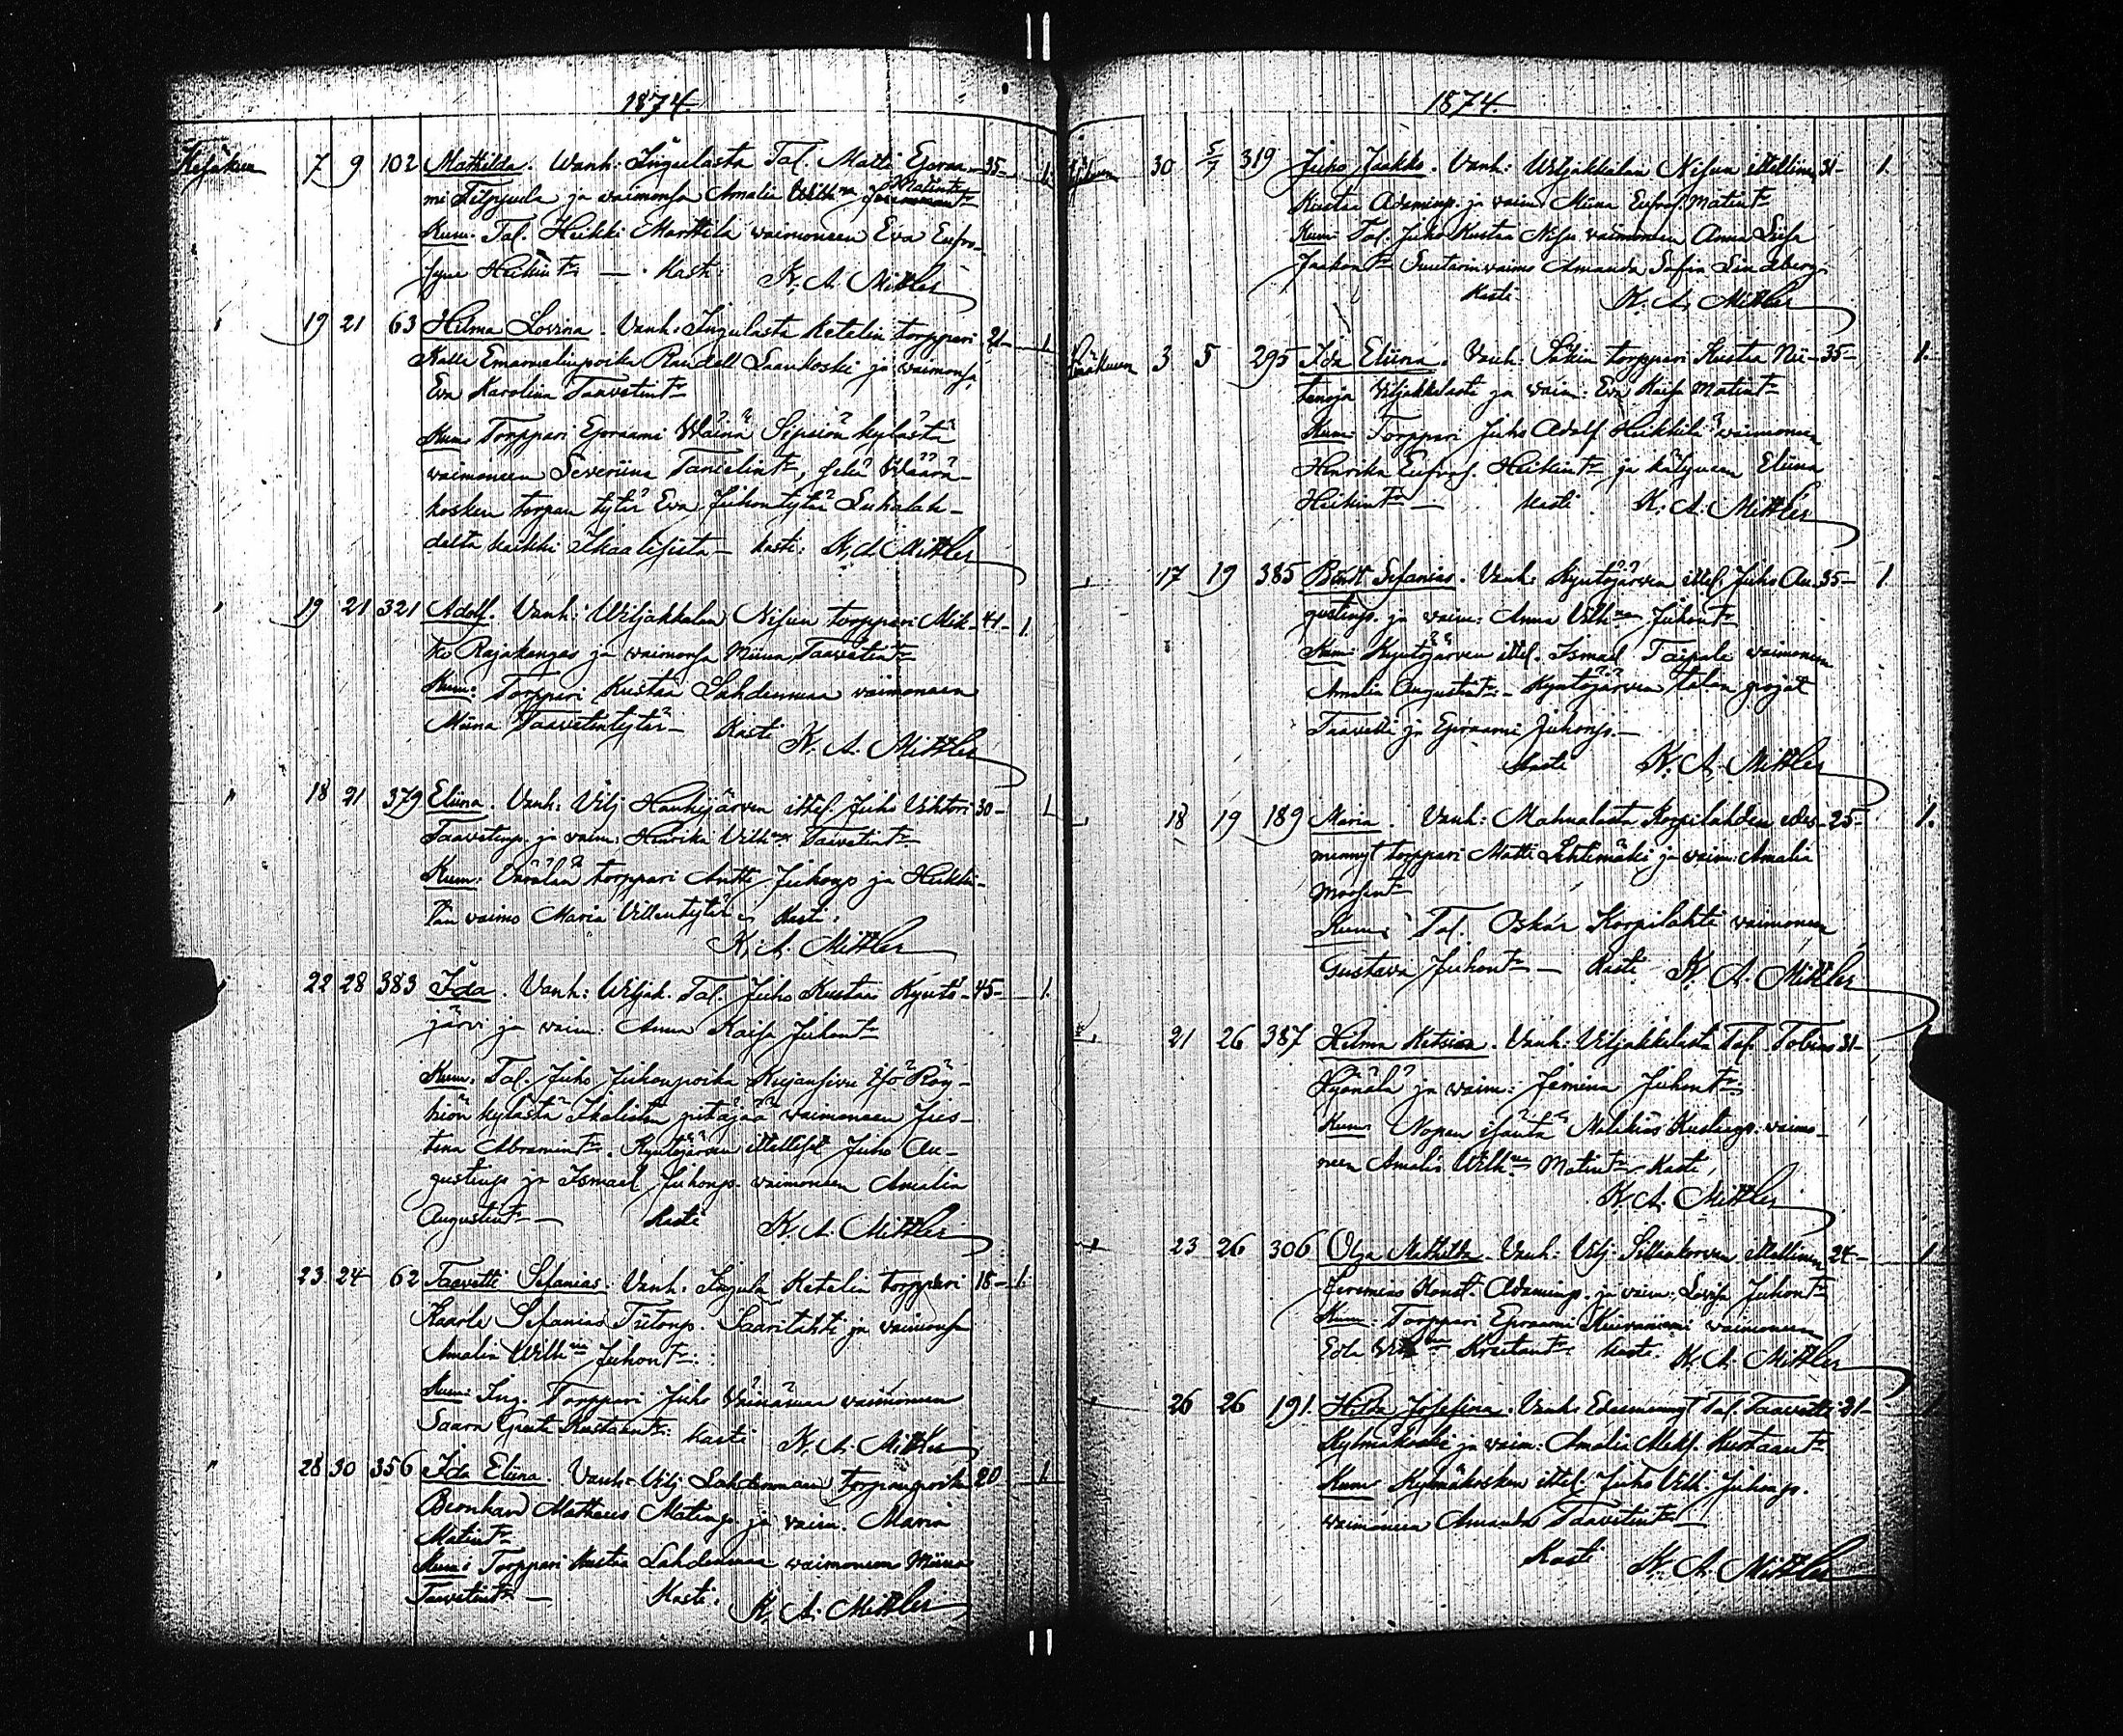 1874.
Kesäkuu 7 9 102 Mathilda. Vanh. Ingulasta Tal. Matti Eforaa- 35- 1.
mi Filppula ja vaimonsa Amalia Vilh:na Matint:r
Kum. Tal. Heikki Marttila vaimoneen Eva Eufro-
syne Heikint:r — Kasti: K. A. Mittler
" 19 21 63 Hilma Lovisa. Vanh: Ingulasta Ketelin torppari 21- 1.
Kalle Emanuelinpoika Randell Laankoski ja vaimonsa
Eva Karolina Taavetint:r
Kum: Torppari Eforaami Wäinä Sipsiön kylästä
vaimoneen Severiina Tanielint:r, sekä Määrä-
kosken torpan tytär Eva Juhontytär Luhalah-
delta kaikki Ikaalisista — Kasti: K. A. Mittler
" 19 21 321 Adolf. Vanh: Wiljakkalan Nisun torppari Mik- 41- 1.
ko Rajakangas ja vaimonsa Miina Taavetint:r
Kum: Torppari Kustaa Lahdenmaa vaimoneen
Miina Taavetintytär — Kasti K. A. Mittler
" 18 21 379 Eliina. Vanh: Vilj Haukijärven ittel. Juho Viktori 30- 1.
Taavetinp. ja vaim: Henrika Vilh:na Taavetint:r
Kum: torppari Antti Juhonp ja Heikki-
län vaimo Maria Villentytär — Kasti:
K. A. Mittler
" 22 28 383 Ida. Vanh: Viljak. Tal. Juho Kustaa Kyntö- 45- 1.
järvi ja vaim: Anna Kaisa Juhont:r
Kum. Tal. Juho Juhonpoika Kujansivu Iso Röy-
hiön kylästä Ikalisten pitäjää vaimoneen Jus-
tina Abramint:r. Kyntöjärven ittelliset Juho Au-
gustinp ja Ismael Juhonp. vaimoneen Amalia
Augustint:r — Kasti K. A. Mittler
" 23 24 62 Taavetti Sefanias: Vanh. Ingula Ketelin torppari 18- 1.
Kaarle Sefanias Tiitonp. Saarilahti ja vaimonsa
Amalia Vilh:na Juhont:r.
Kum: Ing. Torppari Juho Väinämaa vaimoneen
Saara Greta Kustaant:r: Kasti K. A. Mittler
" 28 30 356 Ida Eliina. Vanh: Vilj Lahdenmaan torpanpoika 20 1.
Bernhard Matheus Matinp. ja vaim. Maria
Matint:r
Kum: Torppari Kustaa Lahdenmaa vaimoneen Miina
Taavetint:r — Kasti: K. A. Mittler
1874.
Kesäkuu 30 5/7 319 Juho Jaakko. Vanh: Wiljakkalan Nisun ittellinen 31- 1.
Kustaa Adaminp. ja vaim Miina Eufros. Matint:r
Kum: Tal. Juho Kustaa Nisu vaimoneen Anna Liisa
Jaakon t:r Suutarinvaimo Amanda Sofia Lindberg:
Kasti K. A. Mittler
Heinäkuun 3 5 295 Ida Eliina. Vanh: Säkin torppari Kustaa Nii- 35- 1.
tanoja Viljakkalasti ja vaim: Eva Kaisa Matint:r
Kum: Torppari Juho Adolf Heikkilä vaimoneen
Henrika Eufros. Heikint:r ja kälyneen Eliina
Heikint:r — Kasti K. A. Mittler
" 17 19 385 Sefanias. Vanh: Kyntöjärven ittel. Juho Au- 35- 1
gustinp. ja vaim: Anna Vilh:na Juhont:r
Kum: Kyntöjärven ittel. Ismael Taipale vaimoneen
Amalia Augustint:r — Kyntöjärven talon pojat
Taavetti ja Eforaami Juhonp. —
Kasti K. A. Mittler
" 18 19 189 Maria. Vanh: Mahnalasta Korpilahden edes- 25- 1.
mennyt torppari Matti Lehtimäki ja vaim: Amalia
Moosent:r
Kum: Tal. Oskar Korpilahti vaimoneen
Gustava Juhont:r — Kasti K. A. Mittler
" 21 26 387 Hilma Ketsia. Vanh: Viljakkalasta Tal. Tobias 31-
ja vaim: Jemina Juhont:r:
Kum: Nopan isäntä Malikias Kustaap. vaimo-
neen Amalia Wilh:na Matint:r Kasti
K. A. Mittler
" 23 26 306 Olga Mathilda. Vanh: Vilj. ittellinen 24- 1
Jeremias Konst. Adaminp. ja vaim: Lovisa Juhont:r
Kum: Torppari Eforaami Kuivaniemi vaimoneen
Eda Kustaant:r Kasti. K. A. Mittler
" 26 26 191. Hilda Josefina. Vanh: Edesmennyt Tal. Taavetti 31-
Kylmäkoski ja vaim: Amalia Aleks. Kustaant:r
Kum: Kylmäkosken ittel. Juho Vilh. Juhonp.
vaimoneen Amanda Taavetint:r —
Kasti K. A. Mittler